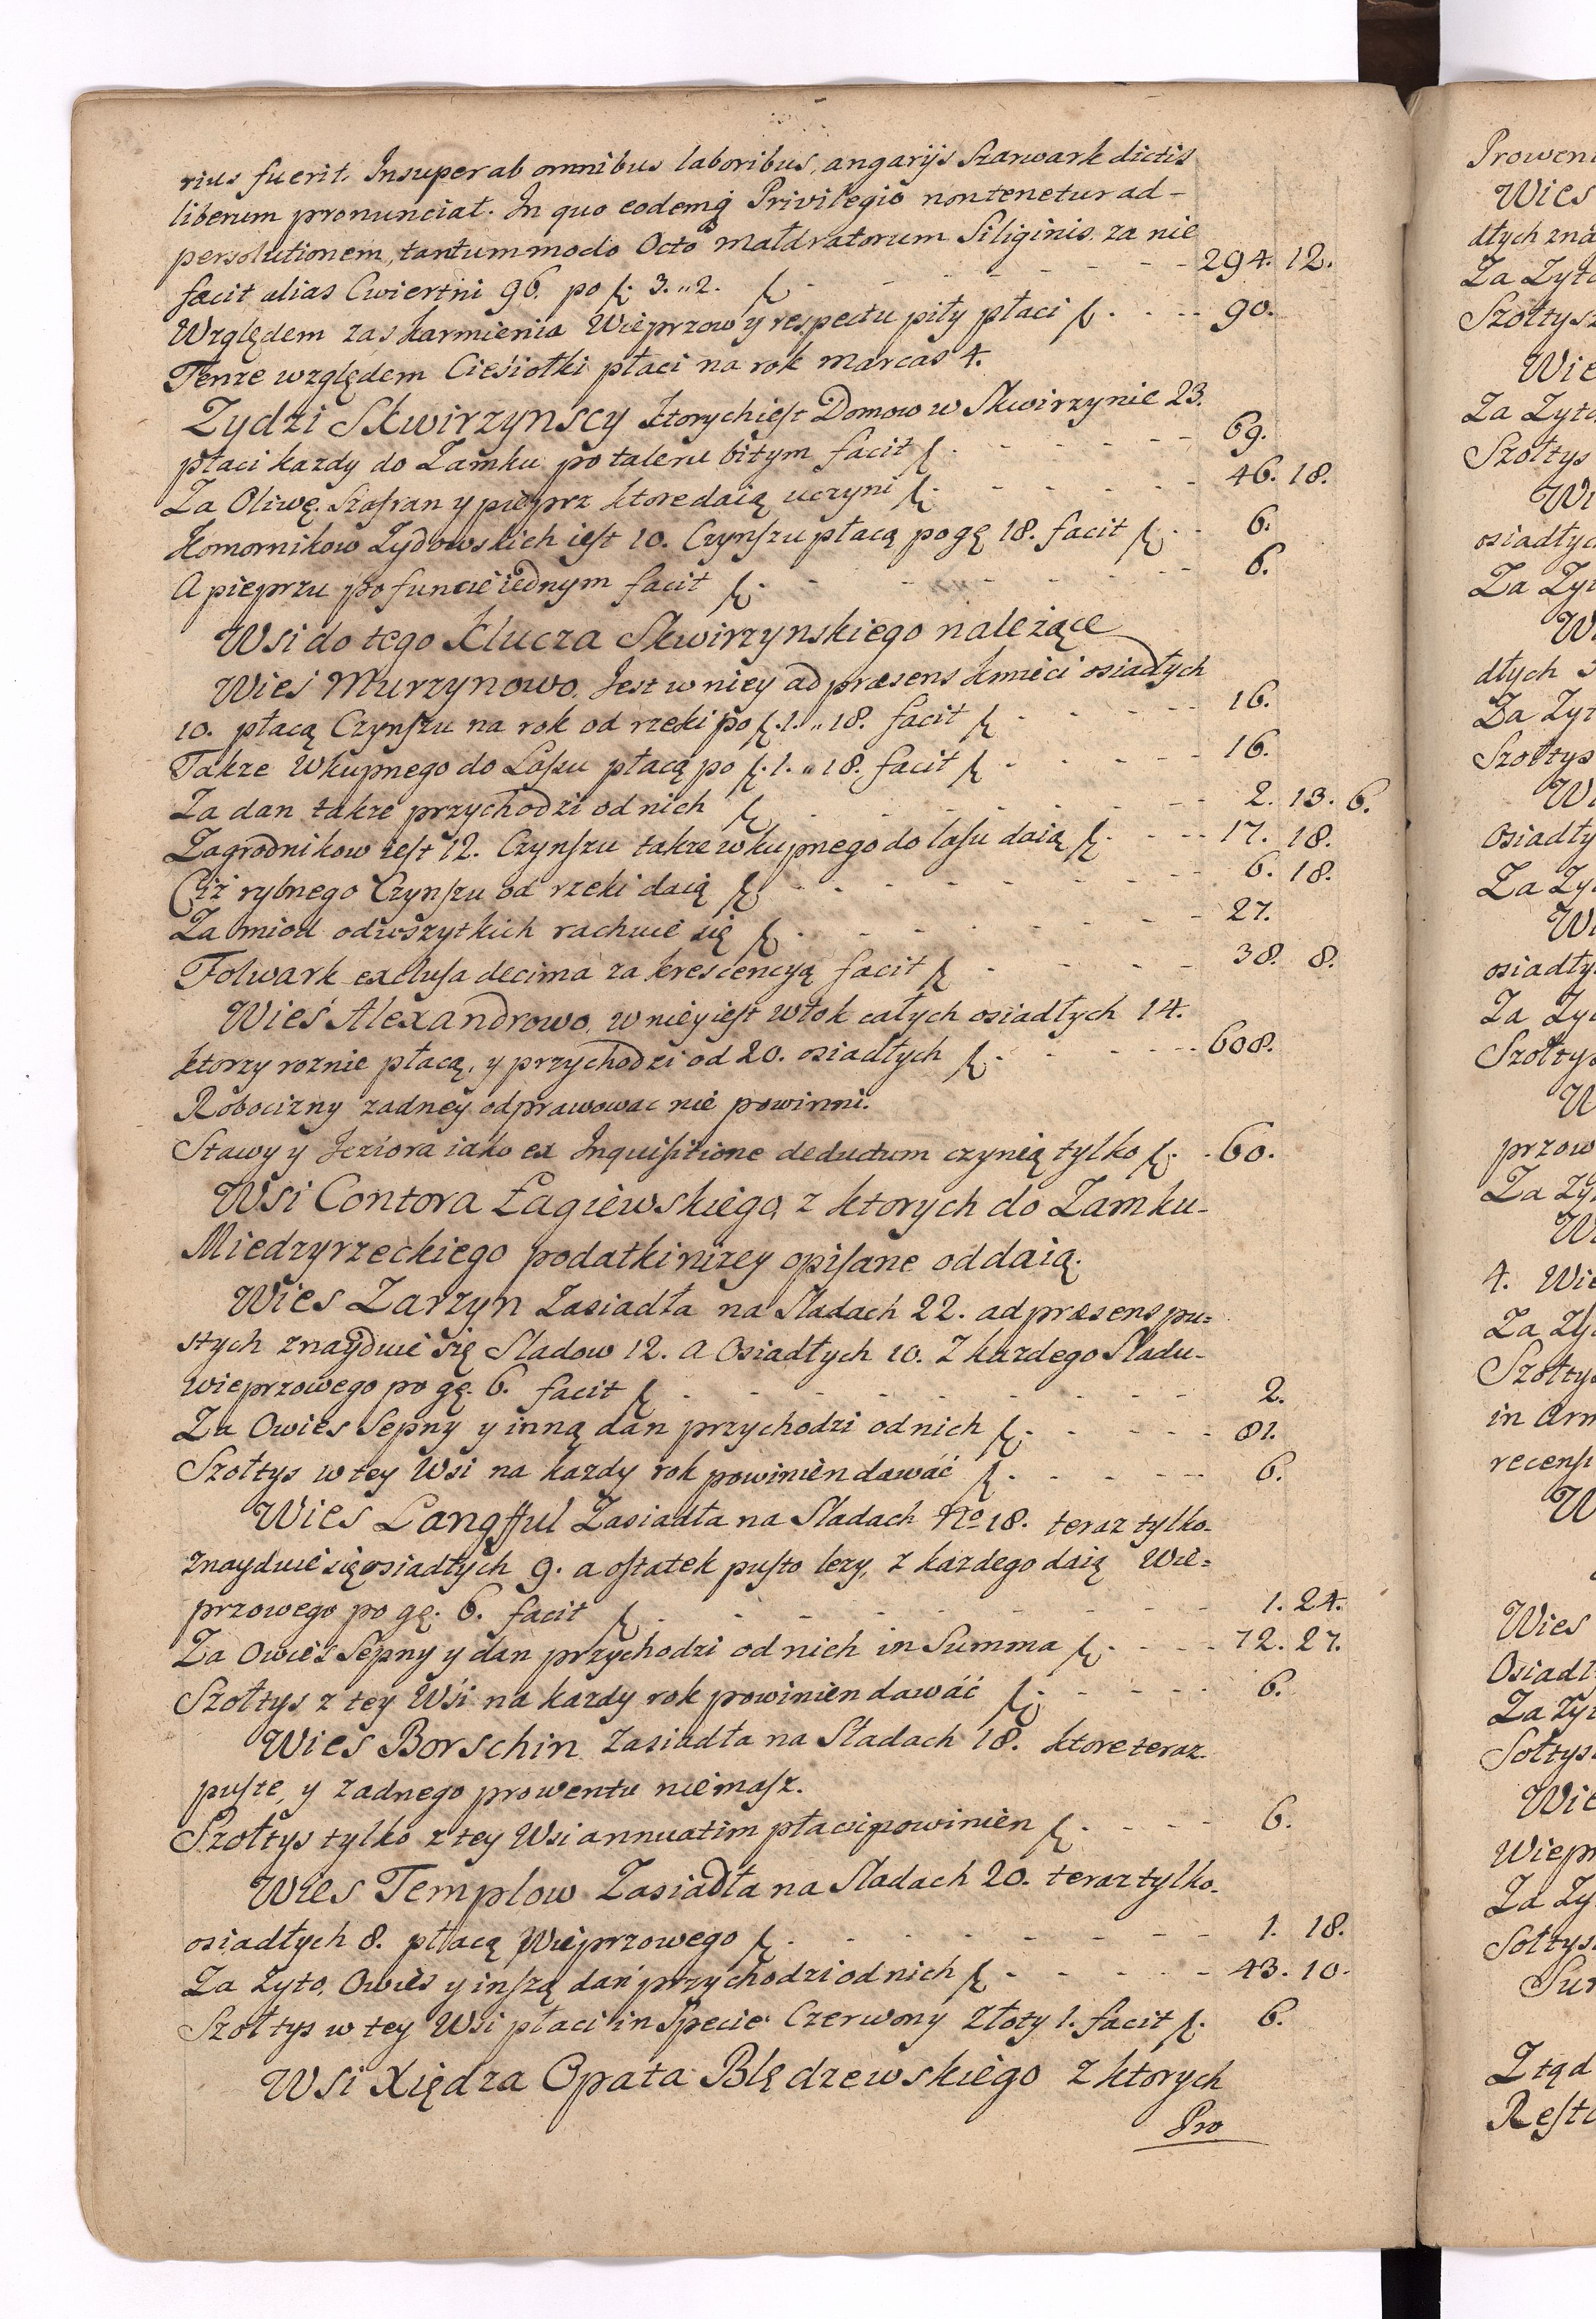 rius fuerit. Insuper ab omnibus laboribus, angarijs Szarwark dictis
liberum pronunciat. In quo eodemq́ Privilegio non tenetur ad-
persolutionem, tantummodo Octo Małdratorum Siliginis. za nie
facit alias Cwiertni 96. po ƒ. 3. „ 2. ƒ. - - - - - - 294. 12.
Względem zas karmienia Wieprzow y respectu piły płaci ƒ. - - - 90.
Tenze względem Ciesiołki płaci na rok marcas 4.
Zydzi Skwirzynscy ktorych iest Domow w Skwirzynie 23.
płaci kazdy do Zamku po taleru bitym facit ƒ. - - - - - - 69.
Za Oliwę. Szafran y pieprz ktore daią uczyni ƒ. - - - - - 46. 18.
Komornikow Zydowskich iest 10. Czynszu płacą po gę 18. facit ƒ. - - 6.
A pieprzu po funcie iednym facit ƒ. - - - - - - 6.
Wsi do tego Klucza Skwirzynskiego należące
Wieś Murzynowo. Jest w niey ad præsens kmieci osiadłych
10. płacą Czynszu na rok od rzeki po ƒ. 1. „ 18. facit ƒ - - - - - 16.
Takze Wkupnego do Lasu płacą po ƒ. 1. „ 18. facit ƒ - - - - - 16.
Za dan takze przychodzi od nich ƒ. - - - - - - - 2. 13. 6.
Zagrodnikow iest 12. Czynszu takze wkupnego do lasu daią ƒ. - - - 17. 18.
Ciż rybnego Czynszu od rzeki daią ƒ. - - - - - - - 6. 18.
Za miod od wszytkich rachuie się ƒ. - - - - - - - 27.
Folwark exclusa decima za krescencyą facit ƒ. - - - - - 38. 8.
Wieś Alexandrowo. w niey iest włok całych osiadłych 14.
ktorzy roznie płacą, y przychodzi od 20. osiadłych ƒ. - - - - - 608.
Robocizny zadney odprawowac nie powinni.
Stawy y Jeziora iako ex Inquisitione deductum czynią tylko ƒ. - 60.
Wsi Contora Łagiewskiego z ktorych do Zamku-
Miedzyrzeckiego podatki nizey opisane oddaią.
Wies Zarzyn Zasiadła na Sladach 22. ad præsens pu=
stych znayduie się Sladow 12. a Osiadłych 10. Z kazdego Sladu-
wieprzowego po gę. 6. facit ƒ. - - - - - - - - 2.
Za Owies Sepny y inną dan przychodzi od nich ƒ. - - - - - 81.
Szołtys w tey Wsi na kazdy rok powinien dawáć ƒ. - - - - - 6.
Wies Langfful Zasiadła na Sladach No 18. teraz tylko-
znayduie się osiadłych 9. a ostatek pusto lezy, z kazdego daią Wie=
przowego po gę. 6. facit ƒ. - - - - - - - - 1. 24.
Za Owies Sepny y dan przychodzi od nich in Summa ƒ. - - - - 72. 27.
Szołtys z tey Wsi na kazdy rok powinien dawáć ƒ. - - - - - 6.
Wies Borschin Zasiadła na Sladach 18. ktore teraz-
puste, y zadnego prowentu niemasz.
Szołtys tylko z tey Wsi annuatim płacic powinien ƒ. - - - - 6.
Wies Templow Zasiadła na Sladach 20. teraz tylko-
osiadłych 8. płacą Wieprzowego ƒ. - - - - - - - - 1. 18.
Za Zyto, Owies y inszą dań przychodzi od nich ƒ - - - - - 43. 10.
Szołtys w tey Wsi płaci in Specie Czerwony Złoty 1. facit ƒ. 6.
Wsi Xiędza Opata Blędzewskiego z ktorych
Pro